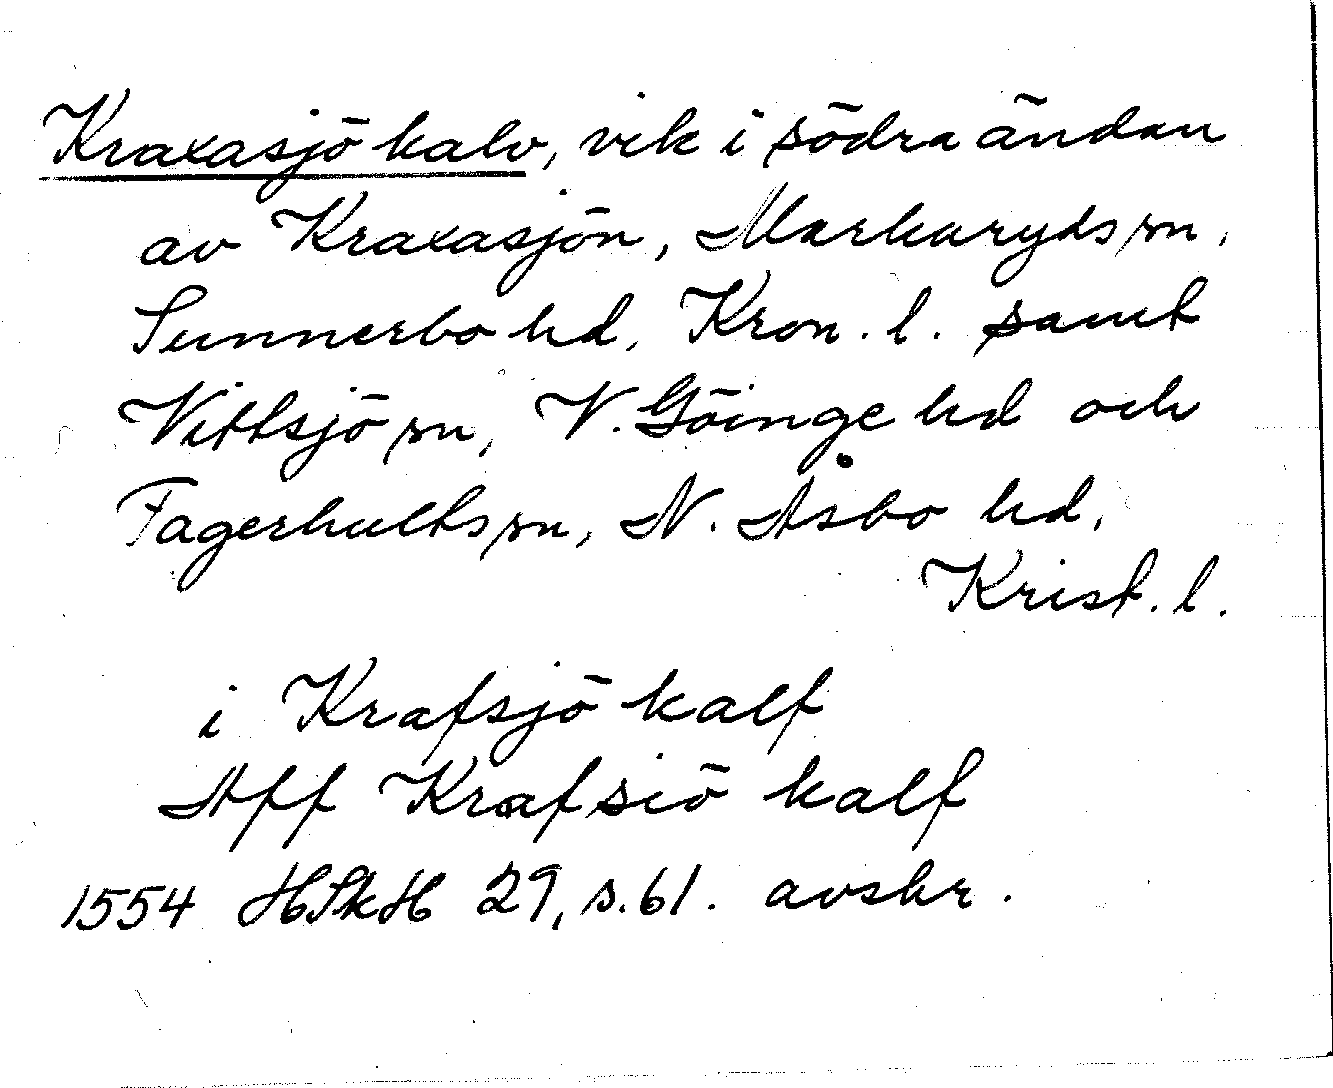 Kraxasjö kalv, vik i södra ändan
av Kraxasjön, Markaryds sn,
Sunnerbo hd, Kron. l. samt
Vittsjö sn, V. Göinge hd och
Fagerhults sn, N. Åsbo hd,
Krist. l.
i Krafsjö kalf
Aff Krafsiö kalf
1554 HSkH 29, s. 61. avskr.